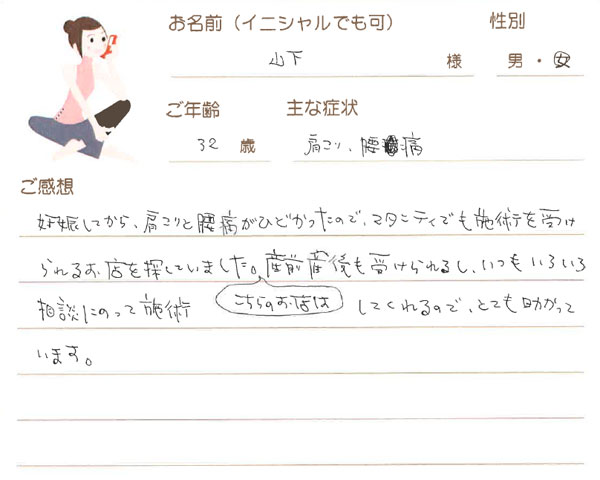 お名前（イニシャルでも可）
性別
山下 様
男・女
ご年齢
主な症状
32 歳
肩こり、腰痛
ご感想
妊娠してから、肩こりと腰痛がひどかったので、マタニティでも施術を受け
られるお店を探していました。産前産後も受けられるし、いつもいろいろ
相談にのって施術
こちらのお店は
してくれるので、とても助かって
います。